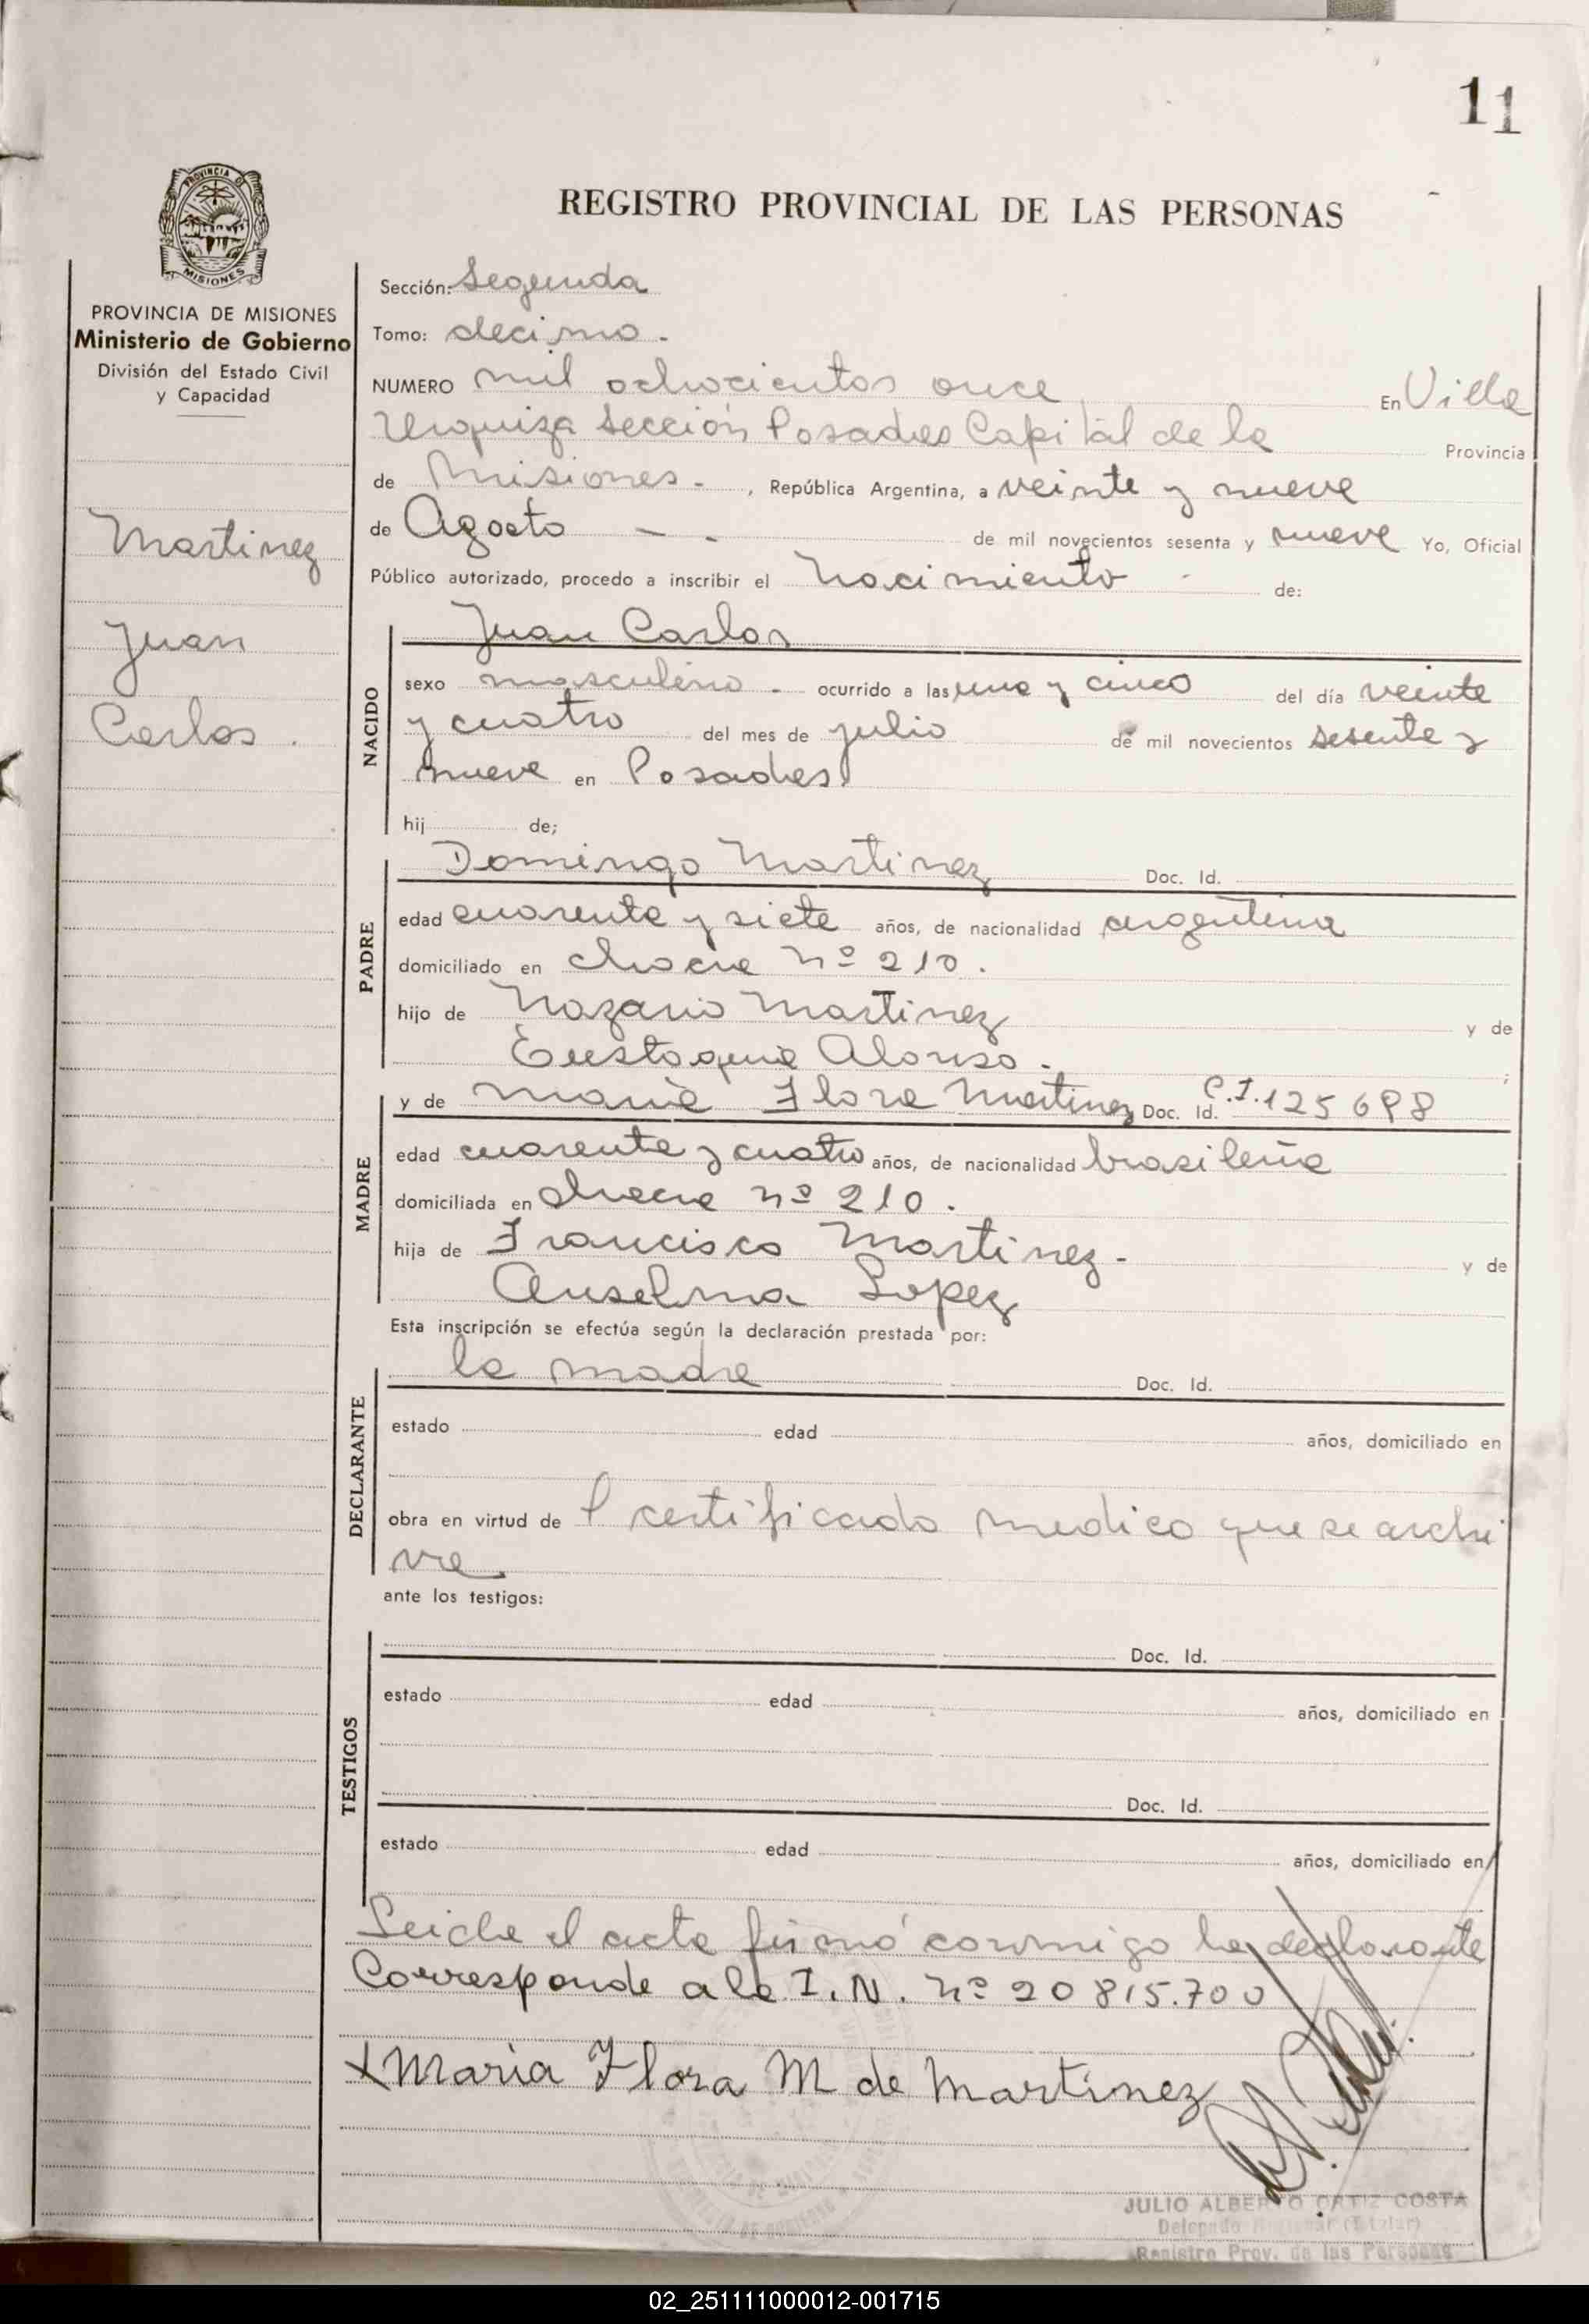 11
REGISTRO PROVINCIAL DE LAS PERSONAS
PROVINCIA DE MISIONES
Ministerio de Gobierno
División del Estado Civil
y Capacidad
Martinez
Juan
Carlos.
Sección: Segunda
Tomo: decimo.
NUMERO mil ochocientos once En Villa
Urquiza Sección Posadas Capital de la Provincia
de Misiones. , República Argentina, a veinte y nueve
de Agosto - . de mil novecientos sesenta y nueve Yo, Oficial
Público autorizado, procedo a inscribir el Nacimiento - de:
NACIDO
Juan Carlos
sexo masculino. ocurrido a las una y cinco del día veinte
y cuatro del mes de julio de mil novecientos sesenta y
nueve en Posadas
hij de;
PADRE
Domingo Martinez Doc. Id.
edad cuarenta y siete años, de nacionalidad argentina
domiciliado en chacra nº 210.
hijo de Nazario Martinez y de
Eustaquia Alonso. ;
MADRE
y de Maria Flora Martinez Doc. Id. C.I. 125698
edad cuarenta y cuatro años, de nacionalidad brasileña
domiciliada en chacra nº 210.
hija de Francisco Martinez - y de
Anselma Lopez
Esta inscripción se efectúa según la declaración prestada por:
DECLARANTE
la madre Doc. Id.
estado edad años, domiciliado en
obra en virtud de l certificado medico que se archi
va
ante los testigos:
TESTIGOS
Doc. Id.
estado edad años, domiciliado en
Doc. Id.
estado edad años, domiciliado en
Leida el acta firmó conmigo la declarante
Corresponde a la I.N. nº 20815.700
x Maria Flora M de Martinez
JULIO ALBERTO ORTIZ COSTA
Delegado (Titular)
Registro Prov. de las Personas
02_251111000012-001715